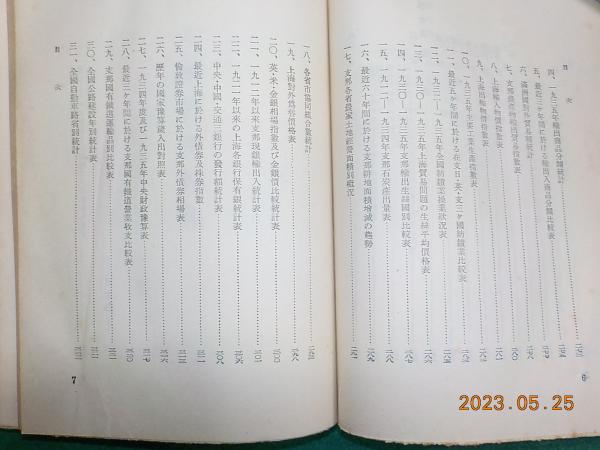 目次
四、一九三五年輸出商品分類統計
五、最近三ケ年間に於ける輸出入商品分類比較表
六、滿洲國對外貿易國別統計
七、支那農產物輸出貿易指數表
八、上海輸入物價指數表
九、上海出輸物價指數表
一〇、一九三五年主要工業生產指數表
一一、最近五ケ年間に於ける在支日・英・支三ケ國紡織業比較表
一二、一九三二—一九三五年全國紡織業操業狀況表
一三、一九三〇—一九三五年上海貿易問題の生絲平均價格表
一四、一九三〇—一九三五年支那輸出生絲國別比較表
一五、一九二一—一九三五年支那石炭產出量表
一六、最近六十年間に於ける支那耕地面積增減の趨勢
一七、支那各省農家土地經營面積別概況
6
一八、各省市協同組合數統計
一九、上海對外爲替價格表
二〇、英・米・金銀相場指數及び金銀價比較統計
二一、一九二一年以來支那現銀輸出入統計表
二二、一九二一年以來の上海各銀行保有銀統計表
二三、中央・中國・交通三銀行の發行額統計表
二四、最近上海に於ける外債券及株券指數
二五、倫敦證券市場に於ける支那外債券相場表
二六、歷年の國家豫算歲入出對照表
二七、一九三四年度及び一九三五年中央財政豫算表
二八、最近三ケ年間に於ける支那國有鐵道營業收支比較表
二九、支那國有鐵道運輸品別比較表
三〇、全國公路建設年別統計表
三一、全國自動車路省別統計
目次
7
2023.05.25